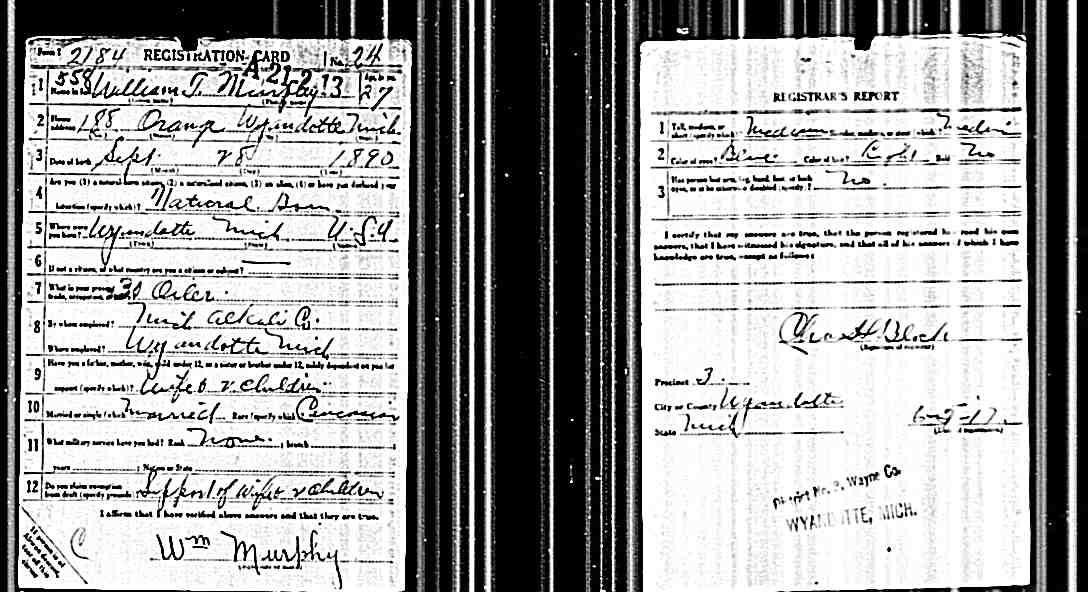 Form 1 2184 REGISTRATION CARD No. 24
A 21 2 13
1 558 William T. Murphy 27
Name in full (Given name) (Family name) Age, in yrs.
2 Home address 188 Orange Wyandotte Mich
3 Date of birth Sept 28 1890
(Month) (Day) (Year)
Are you (1) a natural-born citizen, (2) a naturalized citizen, (3) an alien, (4) or have you declared your
4 intention (specify which)? Natural Born
5 Where were you born? Wyandotte Mich U.S.A.
(Town) (State) (Nation)
6 If not a citizen, of what country are you a citizen or subject?
7 What is your present trade, occupation, or office? Oiler
8 By whom employed? Mich Alkali Co.
Where employed? Wyandotte Mich
9 Have you a father, mother, wife, child under 12, or a sister or brother under 12, solely dependent on you for
support (specify which)? Wife & 2 children
10 Married or single (which)? Married Race (specify which)? Caucasian
11 What military service have you had? Rank None ; branch
years ; Nation or State
12 Do you claim exemption from draft (specify grounds)? Support of wife & 2 children
I affirm that I have verified above answers and that they are true.
C
Wm Murphy
REGISTRAR'S REPORT
1 Tall, medium, or short (specify which)? Medium Slender, medium, or stout (which)? Medium
2 Color of eyes? Blue Color of hair? Light Bald? No
3 Has person lost arm, leg, hand, foot, or both eyes, or is he otherwise disabled (specify)? No
I certify that my answers are true, that the person registered has read his own
answers, that I have witnessed his signature, and that all of his answers of which I have
knowledge are true, except as follows:
Chas H Block
(Signature of registrar)
Precinct 3
City or County Wyandotte
State Mich
(Date of registration)
District No. Wayne Co.
WYANDOTTE, MICH.